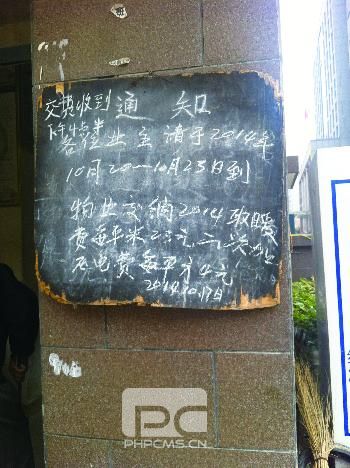 交费收到 通 知
下午4点半
各位业主请于2014年
10月20—10月25日到
物业交纳2014取暖
费每平米23元二次加
压电费每平方4元
2014.10.17日
PC
PHPCMS.CN